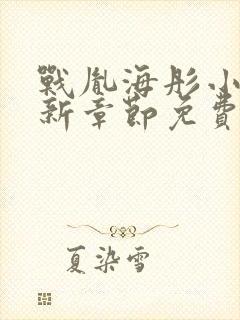 戰胤海彤小
新章節免費
夏染雪